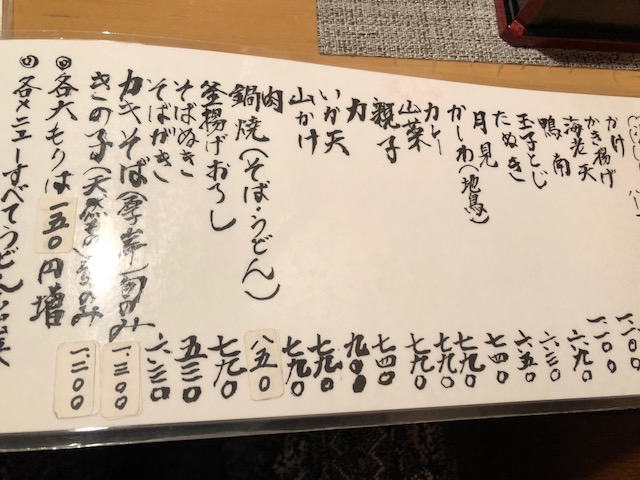 かけ
かき揚げ
海老天
鴨南
玉子とじ
たぬき
月見
かしわ(地鳥)
カレー
山菜
親子
力
いか天
山かけ
肉
鍋焼(そば・うどん)
釜揚げおろし
そばぬき
そばがき
カキそば(厚岸)旬のみ
きの子(天然
のみ
一、一〇〇
一、一〇〇
六九〇
六三〇
六五〇
七四〇
七九〇
七九〇
七九〇
七四〇
九〇〇
七九〇
七九〇
八五〇
七九〇
五三〇
六三〇
一、三〇〇
一、二〇〇
◎各大もりは一五〇円増
◎各メニューすべてうどん